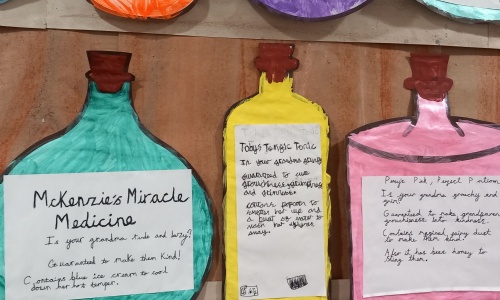 McKenzie's Miracle
Medicine
Is your grandma rude and lazy?
Guaranteed to make them kind!
Contains blue ice cream to cool
down her hot temper.
Toby's Tangic Tonic
Is your grandma grumpy
Guaranteed to cure
grouchiness grumpiness
and
popcorn to
her up and
a dust of water to
wash her
away.
Is your grandma grouchy and
Guaranteed to make grandmas
grouchiness into kindness.
Contains magical fairy dust
to make them kind.
After it has been honey to
them.